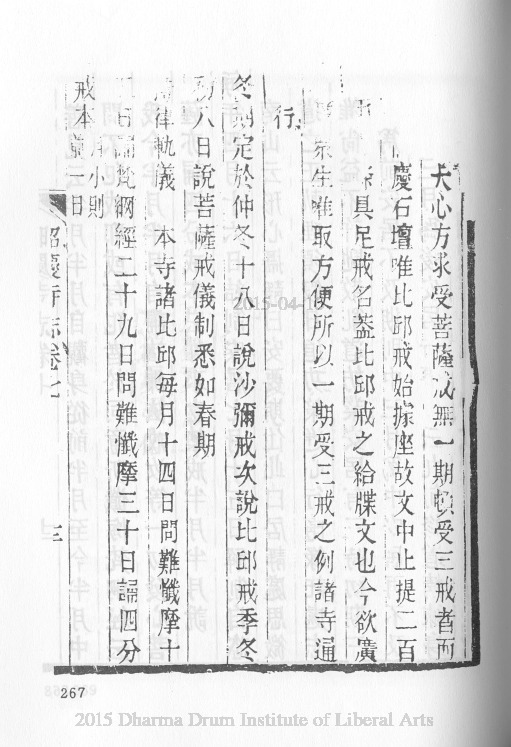 大心方求受菩薩戒無一期頓受三戒者而
慶石壇唯比邱戒始據座故文中止提二百
具足戒名葢比邱戒之給牒文也今欲廣
眾生唯取方便所以一期受三戒之例諸寺通
行
冬期定於仲冬十八日說沙彌戒次說比邱戒季冬
初八日說菩薩戒儀制悉如春期
律軌義 本寺諸比邱每月十四日問難懺摩十
五日誦梵綱經二十九日問難懺摩三十日誦四分
戒本 小則
一日
昭慶寺志卷七
三
267
2015-04-
2015 Dharma Drum Institute of Liberal Arts